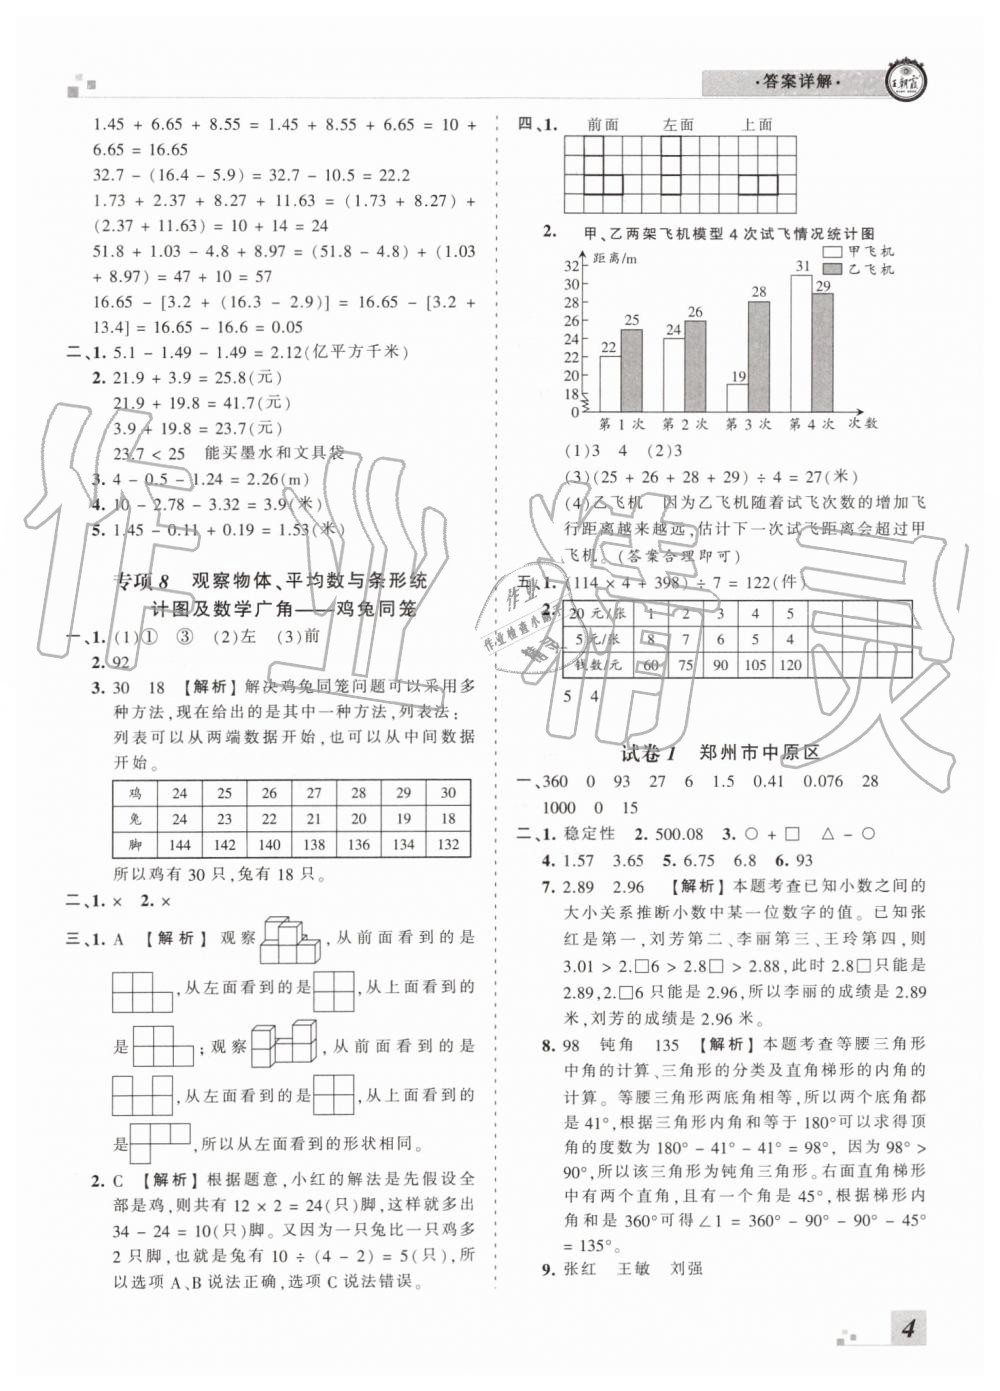 ·答案详解·
王朝霞
1.45 + 6.65 + 8.55 = 1.45 + 8.55 + 6.65 = 10 +
6.65 = 16.65
32.7 - (16.4 - 5.9) = 32.7 - 10.5 = 22.2
1.73 + 2.37 + 8.27 + 11.63 = (1.73 + 8.27) +
(2.37 + 11.63) = 10 + 14 = 24
51.8 + 1.03 - 4.8 + 8.97 = (51.8 - 4.8) + (1.03
+ 8.97) = 47 + 10 = 57
16.65 - [3.2 + (16.3 - 2.9)] = 16.65 - [3.2 +
13.4] = 16.65 - 16.6 = 0.05
二、1. 5.1 - 1.49 - 1.49 = 2.12(亿平方千米)
2. 21.9 + 3.9 = 25.8(元)
21.9 + 19.8 = 41.7(元)
3.9 + 19.8 = 23.7(元)
23.7 < 25 能买墨水和文具袋
3. 4 - 0.5 - 1.24 = 2.26(m)
4. 10 - 2.78 - 3.32 = 3.9(米)
5. 1.45 - 0.11 + 0.19 = 1.53(米)
专项 8 观察物体、平均数与条形统
计图及数学广角——鸡兔同笼
一、1. (1)① ③ (2)左 (3)前
2. 92
3. 30 18 【解析】解决鸡兔同笼问题可以采用多
种方法,现在给出的是其中一种方法,列表法:
列表可以从两端数据开始,也可以从中间数据
开始。
鸡 24 25 26 27 28 29 30
兔 24 23 22 21 20 19 18
脚 144 142 140 138 136 134 132
所以鸡有 30 只,兔有 18 只。
二、1. × 2. ×
三、1. A 【解析】观察 ,从前面看到的是
,从左面看到的是 ,从上面看到的
是 ;观察 ,从前面看到的是
,从左面看到的是 ,从上面看到的
是 ,所以从左面看到的形状相同。
2. C 【解析】根据题意,小红的解法是先假设全
部是鸡,则共有 12 × 2 = 24(只)脚,这样就多出
34 - 24 = 10(只)脚。又因为一只兔比一只鸡多
2 只脚,也就是兔有 10 ÷ (4 - 2) = 5(只),所
以选项 A、B 说法正确,选项 C 说法错误。
四、1. 前面 左面 上面
2. 甲、乙两架飞机模型 4 次试飞情况统计图
距离/m
甲飞机
乙飞机
32
30
28
26
24
22
20
18
0
22 25 24 26 19 28 31 29
第 1 次 第 2 次 第 3 次 第 4 次 次数
(1)3 4 (2)3
(3)(25 + 26 + 28 + 29) ÷ 4 = 27(米)
(4)乙飞机 因为乙飞机随着试飞次数的增加飞
行距离越来越远,估计下一次试飞距离会超过甲
飞机。(答案合理即可)
五、1. (114 × 4 + 398) ÷ 7 = 122(件)
2.
20 元/张 1 2 3 4 5
5 元/张 8 7 6 5 4
钱数/元 60 75 90 105 120
5 4
试卷 1 郑州市中原区
一、360 0 93 27 6 1.5 0.41 0.076 28
1000 0 15
二、1. 稳定性 2. 500.08 3. ○ + □ △ - ○
4. 1.57 3.65 5. 6.75 6.8 6. 93
7. 2.89 2.96 【解析】本题考查已知小数之间的
大小关系推断小数中某一位数字的值。已知张
红是第一,刘芳第二、李丽第三、王玲第四,则
3.01 > 2.□6 > 2.8□ > 2.88,此时 2.8□只能是
2.89,2.□6 只能是 2.96,所以李丽的成绩是 2.89
米,刘芳的成绩是 2.96 米。
8. 98 钝角 135 【解析】本题考查等腰三角形
中角的计算、三角形的分类及直角梯形的内角的
计算。等腰三角形两底角相等,所以两个底角都
是 41°,根据三角形内角和等于 180°可以求得顶
角的度数为 180° - 41° - 41° = 98°,因为 98° >
90°,所以该三角形为钝角三角形。右面直角梯形
中有两个直角,且有一个角是 45°,根据梯形内角
和是 360°可得∠1 = 360° - 90° - 90° - 45°
= 135°。
9. 张红 王敏 刘强
4
作业精灵